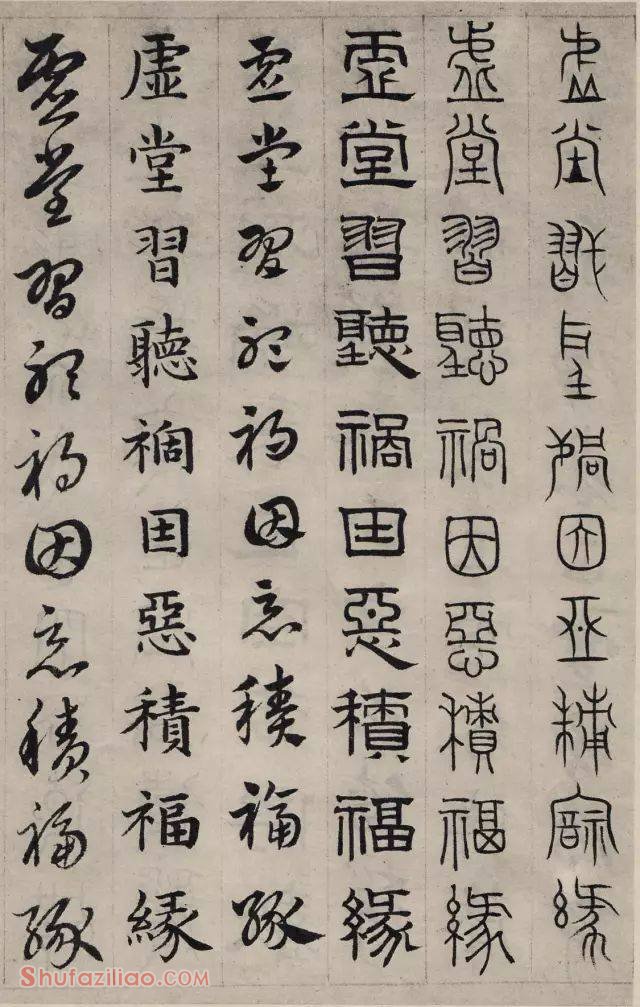 虛堂習聽禍因惡積福緣
虛堂習聽禍因惡積福緣
虛堂習聽禍因惡積福緣
虛堂習聽禍因惡積福緣
虛堂習聽禍因惡積福緣
虛堂習聽禍因惡積福緣
Shufaziliao.com